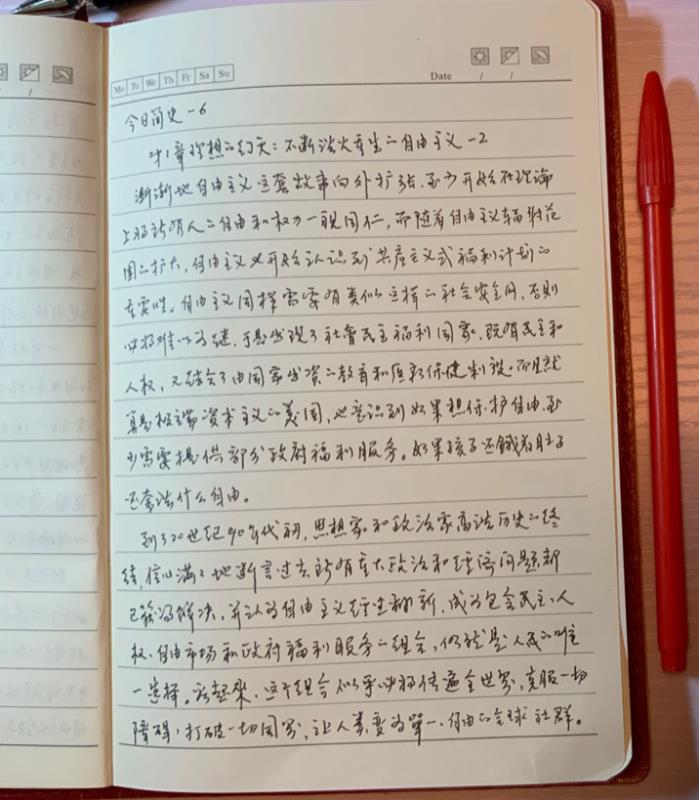 Mo Tu We Th Fr Sa Su
Date / /
今日简史-6
第1章理想的幻灭：不断浴火重生的自由主义-2
渐渐地自由主义这套故事向外扩张，至少开始在理论
上将所有人的自由和权力一视同仁，而随着自由主义辐射范
围的扩大，自由主义也开始认识到共产主义式福利计划的
重要性。自由主义同样需要有类似这样的社会安全网，否则
必将难以为继，于是出现了社會民主福利国家，既有民主和
人权，又结合了由国家出资的教育和医疗保健制度。而且就
算是极端资本主义的美国，也意识到如果想保护自由，至
少需要提供部分政府福利服务。如果孩子还餓着肚子
还奢谈什么自由。
到了20世纪90年代初，思想家和政治家高谈历史的终
结，信心满々地断言过去所有重大政治和经济问题都
已获得解决，并认为自由主义经重新翻新，成为包含民主、人
权、自由市场和政府福利服务的组合，仍就是人民的唯
一选择。说起來，这个组合似乎必将传遍全世界，克服一切
障碍，打破一切国界，让人类变为單一、自由的全球社群。